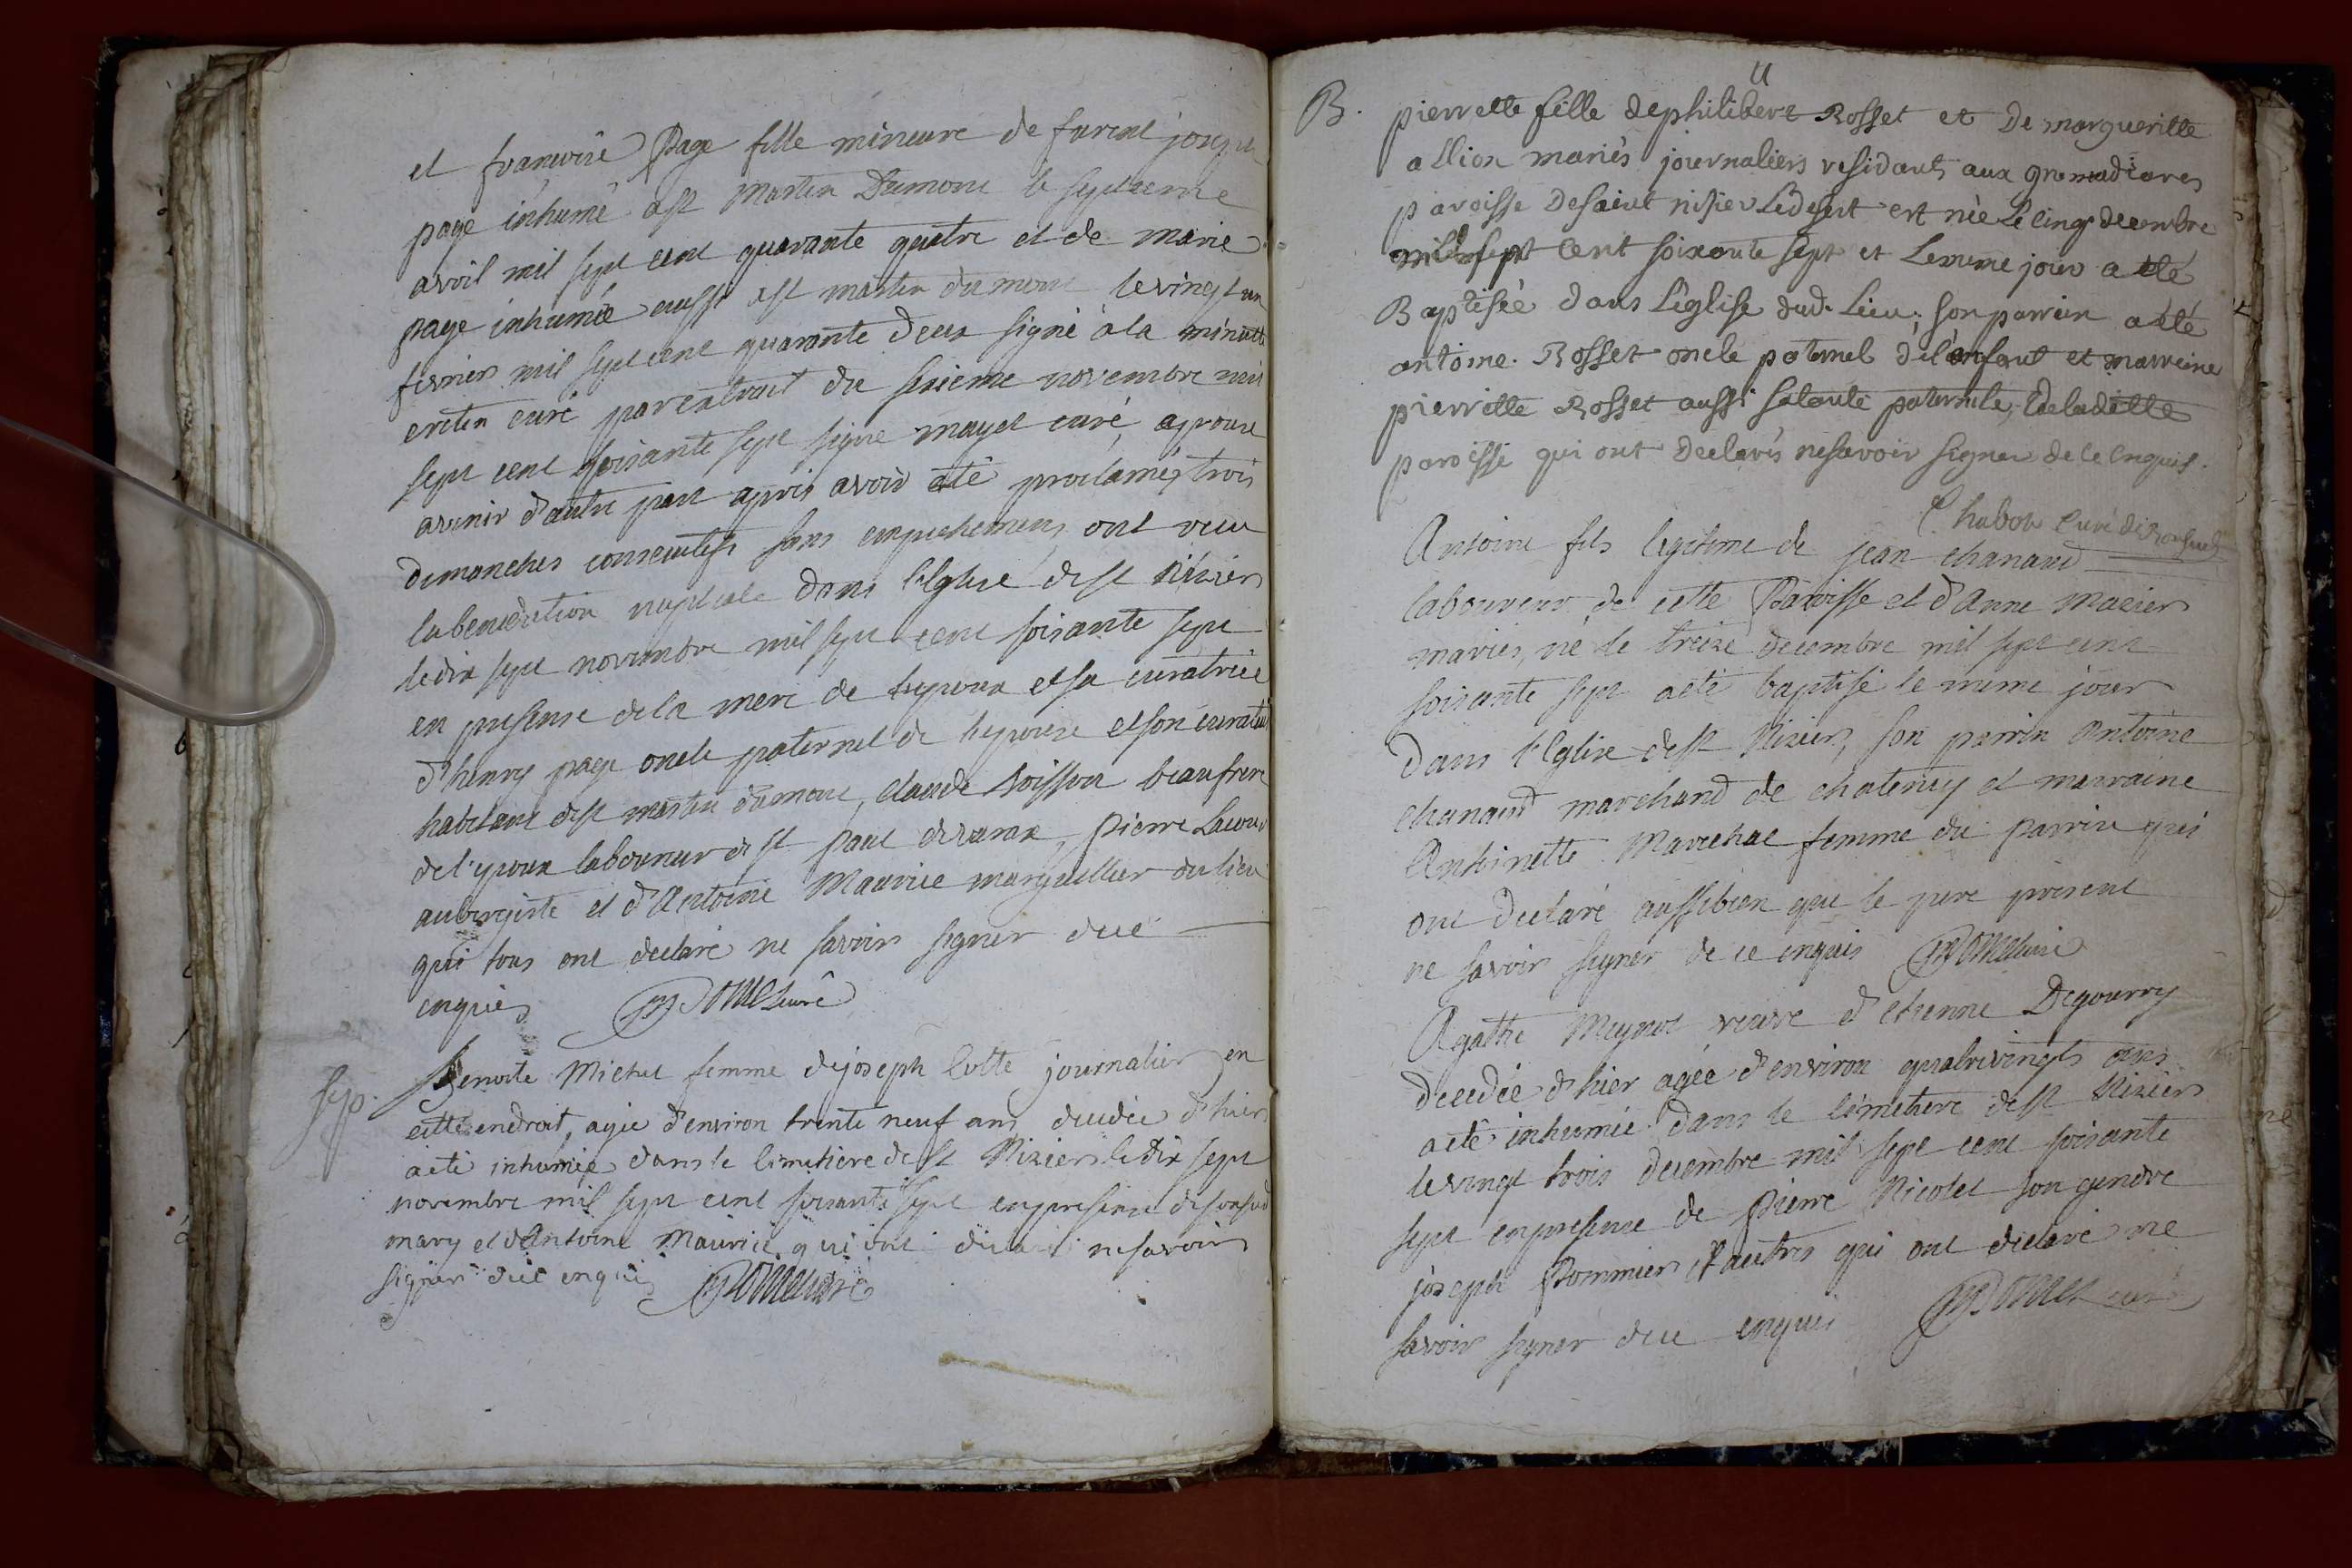 et francoise Page fille mineure de furent joseph
page inhumé a st Martin Dumont le septieme
avril mil sept cent quarante quatre et de marie
page inhumée aussi a st martin du mont le vingt un
fevrier mil sept cent quarante deux signé a la minutte
curé par extrait du seizieme novembre mil
sept cent soixante sept signe mayet curé, aprouvé
avenir d'autre part après avoir été proclamés trois
dimanches consecutifs sans empechemens ont recu
la benediction nuptiale dans l'Eglise de st Nizier
le dix sept novembre mil sept cent soixante sept
en presence de la mere de lepoux et sa curatrice
d'henry page oncle paternel de lepouse et son curateur
habitant de st martin dumont, claude boisson beaufrere
de l'epoux laboureur de st paul de varax, pierre Lacour
aubergiste et d'Antoine Maurice marguillier du lieu
qui tous ont declaré ne savoir signer de ce
enquis curé
Sep. Benoite Michel femme de joseph Cotte journalier en
cette endroit, agée d'environ trente neuf ans, decedée d'hier
a eté inhumée dans le cimetiere de st Nizier le dix sept
novembre mil sept cent soixante sept en presence de son sud
mary et d'Antoine Maurice qui ont declaré ne savoir
signer de ce enquis curé
u
B. pierrette fille de philibert Rosset et De marguerite
allion mariés journaliers residants aux
paroisse de saint nisier Le desert est née Le cinq decembre
mil sept cent soixante sept et Le meme jour a eté
Baptisée dans L'eglise dud. Lieu; son parrein a été
antoine Rosset oncle paternel de l'enfant et marreine
pierrette Rosset aussi sa tante paternelle, de la ditte
paroisse qui ont declarés ne savoir signer de ce Enquis.
Chabot Curé de
Antoine fils legitime de jean chanaud
laboureur de cette Paroisse et d'Anne Mazier
mariés, né le treize decembre mil sept cent
soixante sept a eté baptisé le meme jour
dans l'Eglise de st Nizier, son parrin Antoine
chanaud marchand de chatenay et marraine
Antoinette Marechal femme du parrin qui
ont declaré aussi bien que le pere present
ne savoir signer de ce enquis curé
Agathe Meynot veuve d'etienne Degourry
decedée d'hier agée d'environ quatrevingts ans
a eté inhumée dans le cimetiere de st Nizier
le vingt trois decembre mil sept cent soixante
sept en presence de Pierre Nicolet son gendre
joseph Pommier et autres qui ont declaré ne
savoir signer de ce enquis curé